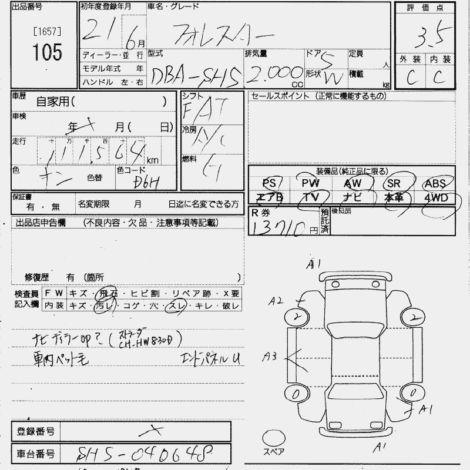 出品番号 初年度登録年月 車名・グレード 評価点
[1657] 21年 6月 フォレスター 3.5
105 ディーラー・並行 型式 排気量 ドア 5 定員 人 外装 内装
モデル年式 年 DBA-SH5 2.000cc 形状 W 積載 kg C C
ハンドル 左・右
車歴 自家用( ) シフト F/AT セールスポイント (正常に機能するもの)
車検 年 × 月( 日) 冷房 A/C
走行 111564km 燃料
色 色替 色コード D6H 装備品(純正品に限る)
PS PW AW SR ABS
エアB TV ナビ 本革 4WD
保証書 有・無 名変期限 月 日迄に名変できる方 R券 13710円 預託済 検知品
出品店申告欄 (不良内容・欠品・注意事項等記載)
修復歴 有 (箇所 )
検査員記入欄 FW キズ・飛石・ヒビ割・リペア跡・X要
内装 キズ・汚レ・コゲ・穴・スレ・キレ・破レ
ナビ ディーラーop? (ストラーダ CN-HW830D)
車内ペット毛 エンドパネルU
A1
A2
2 2
A3
0 0
A1
スペア A1
登録番号 ×
車台番号 SH5-040648